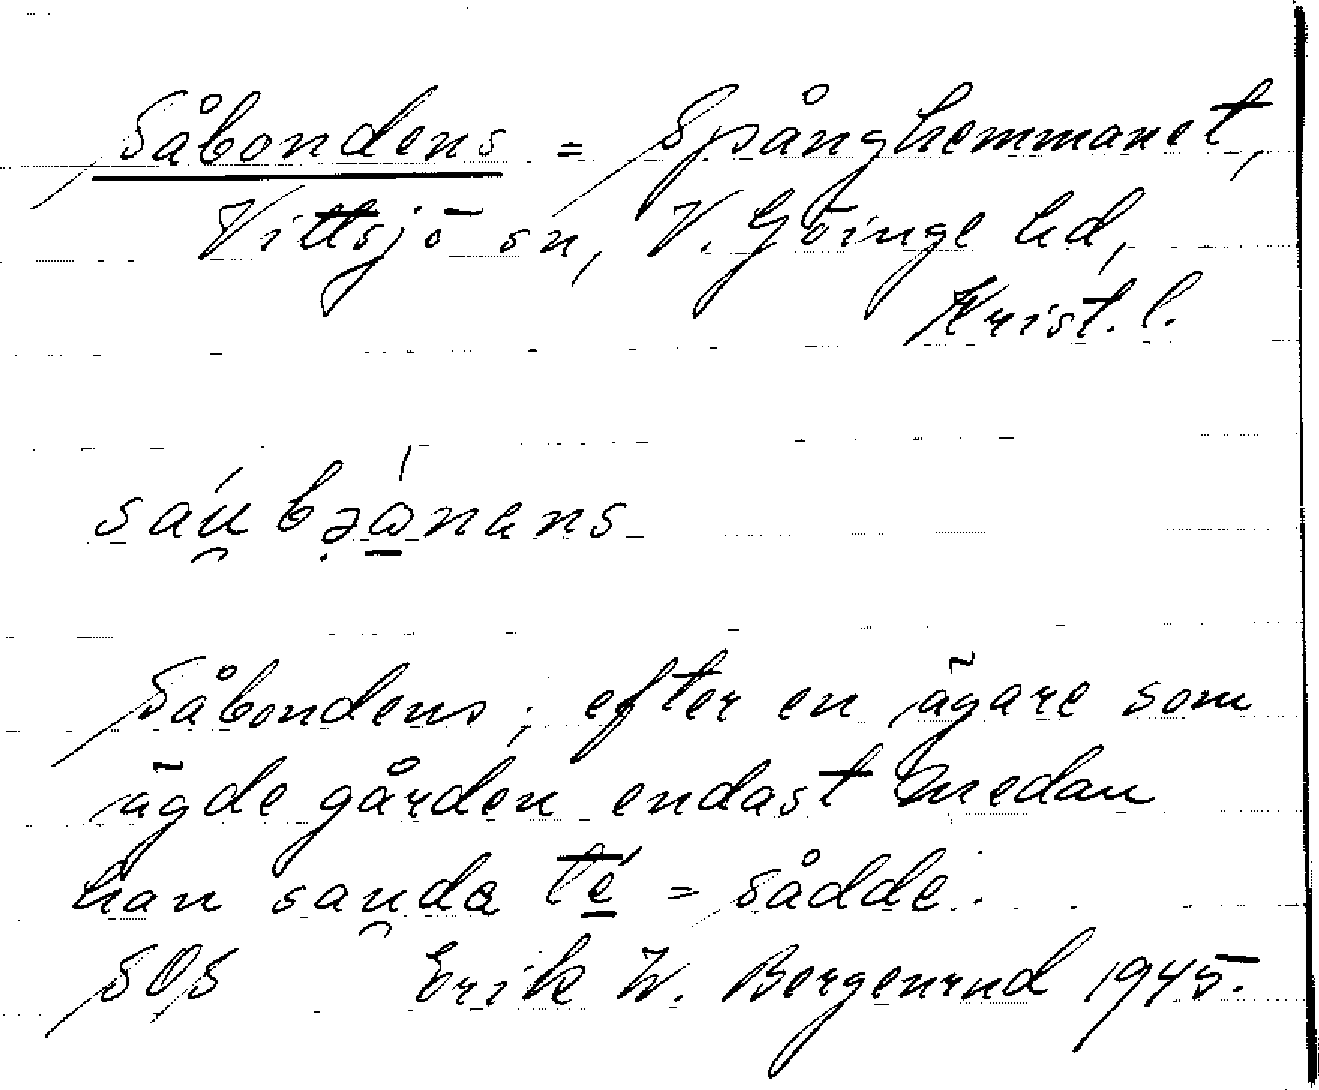 Såbondens = Spånghemmanet,
Vittsjö sn, V. Göinge hd,
Krist. l.
Såbondens; efter en ägare som
ägde gården endast medan
han sau̯da té = sådde.
SOS Erik W. Bergenrud 1945.